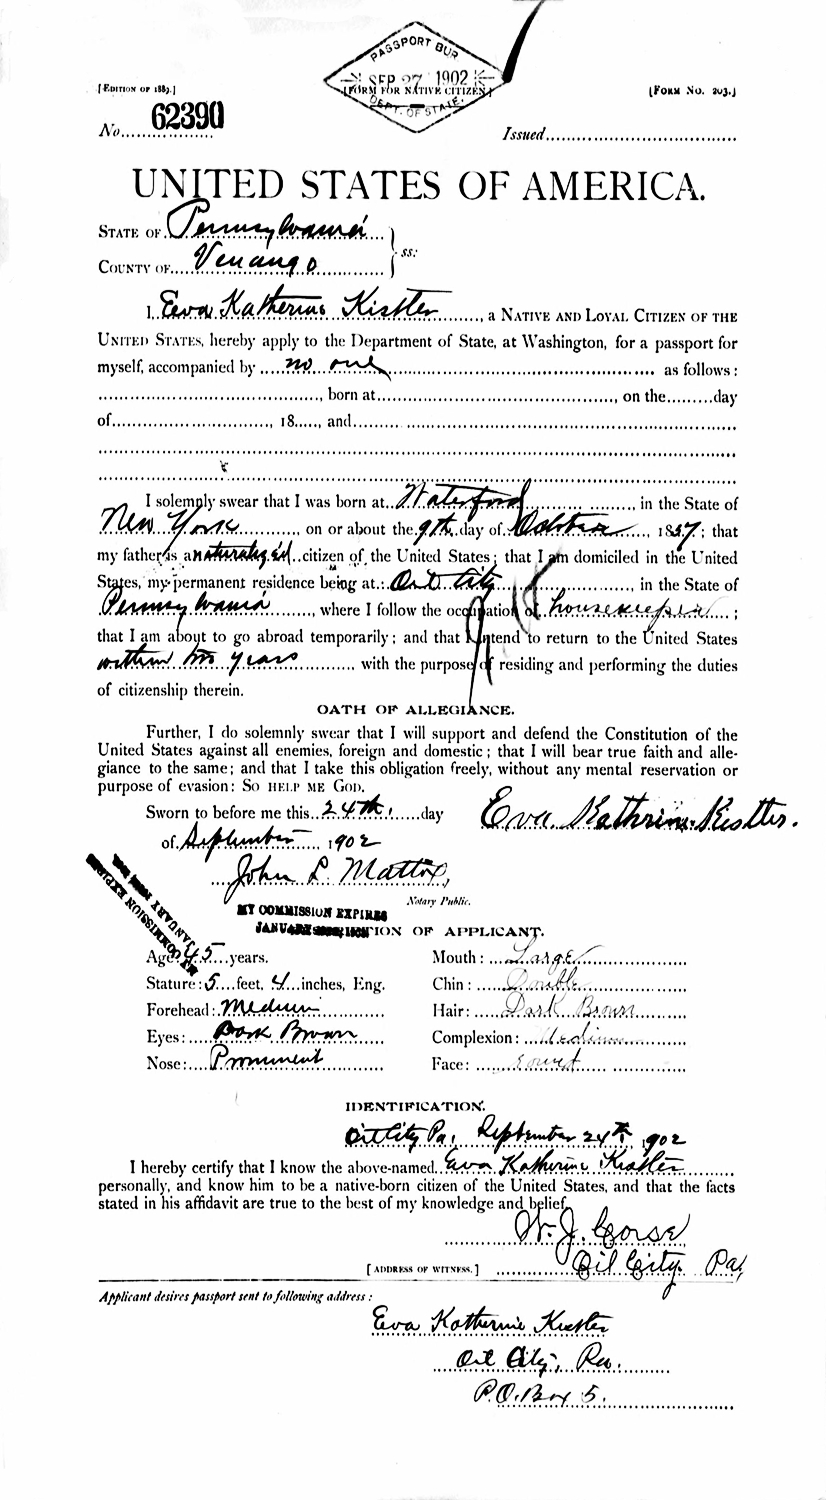 PASSPORT BUR
SEP 27 1902
[EDITION OF 1889.] [FORM FOR NATIVE CITIZEN.] [FORM No. 203.]
DEPT. OF STATE.
No. 62390 Issued
UNITED STATES OF AMERICA.
STATE OF Pennsylvania
COUNTY OF Venango ss:
I, Eva Katherine Kistler, a NATIVE AND LOYAL CITIZEN OF THE
UNITED STATES, hereby apply to the Department of State, at Washington, for a passport for
myself, accompanied by no one as follows:
, born at , on the day
of , 18 , and
I solemnly swear that I was born at Waterford, in the State of
New York, on or about the 9th day of October, 1857; that
my father is a naturalized citizen of the United States; that I am domiciled in the United
States, my permanent residence being at Oil City, in the State of
Pennsylvania, where I follow the occupation of housekeeper;
that I am about to go abroad temporarily; and that I intend to return to the United States
within two years, with the purpose of residing and performing the duties
of citizenship therein.
OATH OF ALLEGIANCE.
Further, I do solemnly swear that I will support and defend the Constitution of the
United States against all enemies, foreign and domestic; that I will bear true faith and alle-
giance to the same; and that I take this obligation freely, without any mental reservation or
purpose of evasion: SO HELP ME GOD.
Sworn to before me this 24th. day Eva Kathrine Kistler.
of September, 1902
John L. Mattox,
Notary Public.
MY COMMISSION EXPIRES
JANUARY
MY COMMISSION EXPIRES
JANUARY
TION OF APPLICANT.
Age: 45 years. Mouth: Large
Stature: 5 feet, 4 inches, Eng. Chin: Double
Forehead: Medium Hair: Dark Brown
Eyes: Dark Brown Complexion: Medium
Nose: Prominent Face: round
IDENTIFICATION.
Oil City Pa, September 24th, 1902
I hereby certify that I know the above-named Eva Katherine Kistler
personally, and know him to be a native-born citizen of the United States, and that the facts
stated in his affidavit are true to the best of my knowledge and belief.
W. J. Corse
[ADDRESS OF WITNESS.] Oil City. Pa,
Applicant desires passport sent to following address:
Eva Katherine Kistler
Oil City, Pa.
P.O. Box 5.